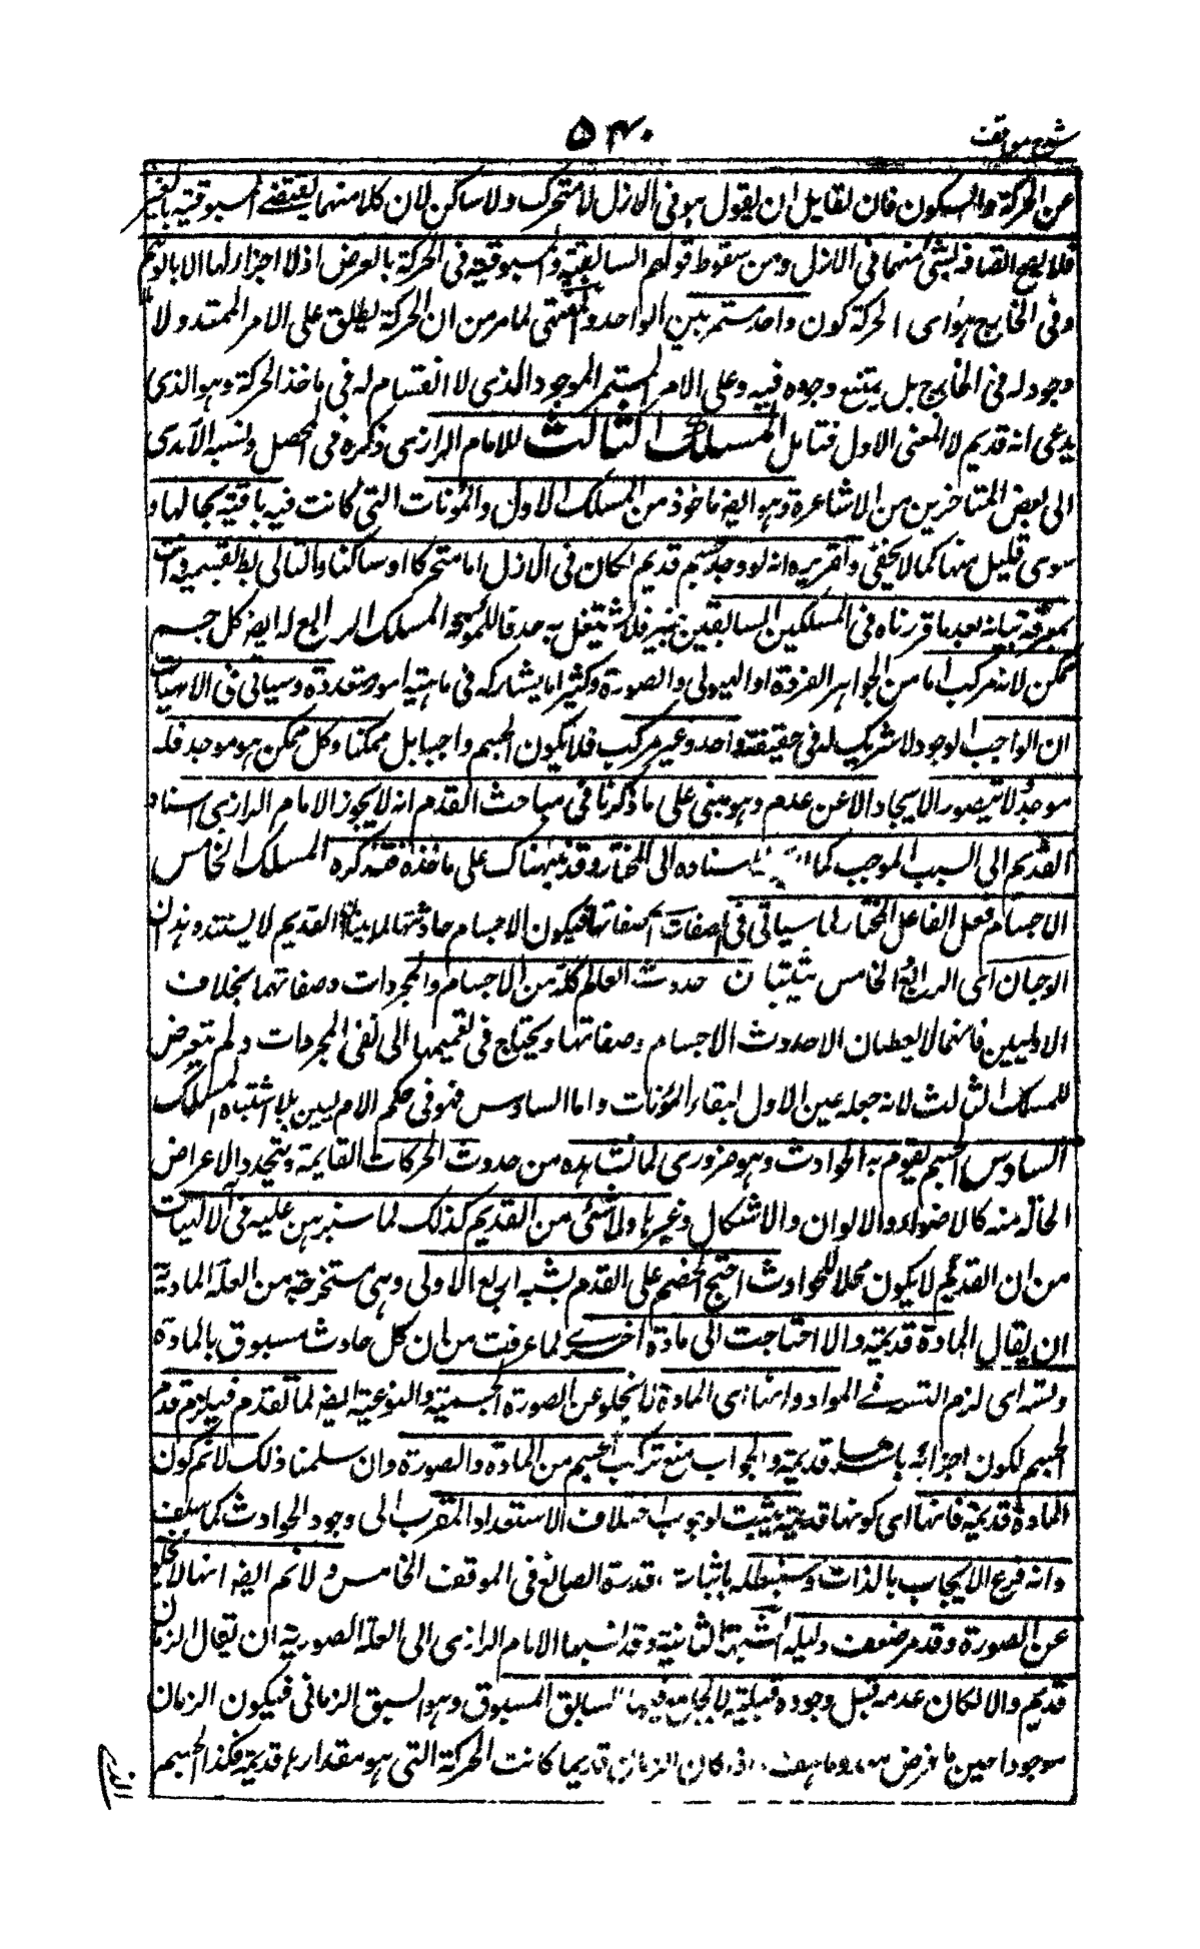 شرح مواقف
۵۴۰
عن الحركة والسكون فان لقايل ان يقول هو فى الازل لا متحرك ولا ساكن لان كلا منهما يقتضے المسبوقية بالغير
فلا يصح اتصافه بشئ منهما فى الازل ومن سقوط قولهم السابقية والمسبوقية فى الحركة بالعرض اذ لا اجزاء لها الا بالوهم
وفى الخارج هو اى الحركة كون واحد مستمر بين الواحد والمنتهى لما مر من ان الحركة يطلق على الامر الممتد ولا
وجود له فى الخارج بل يمتنع وجوده فيه وعلى الامر المستمر الموجود الذى لا انقسام له فى ماخذ الحركة وهو الذى
يدعى انه قديم لا المعنى الاول فتامل المسلك الثالث للامام الرازى ذكره فى المحصل ونسبه الآمدى
الى بعض المتاخرين من الاشاعرة وهو ايضا ماخوذ من المسلك الاول والمؤنات التى كانت فيه باقية بحالها و
سوى قليل منها كما لا يخفى وتقريره انه لو وجد جسم قديم لكان فى الازل اما متحركا او ساكنا والتالى بط بقسميه وانت
بمعرفة تبيانه بعد ما قررناه فى المسلكين السابقين خبير فلا نشتغل به حدقا للمؤنة المسلك الرابع له ايضا كل جسم
ممكن لانه مركب اما من الجواهر الفردة او الهيولى والصورة وكثير اما يشاركه فى ماهيته امور متعددة وسياتى فى الالهيات
ان الواجب الوجود لا شريك له فى حقيقته واحد وغير مركب فلا يكون الجسم واجبا بل ممكنا وكل ممكن هو موجد فله
موجد لا يتصور الايجاد الا عن عدم وهو مبنى على ما ذكرنا فى مباحث القدم انه لا يجوز الامام الرازى اسناد
القديم الى السبب الموجب كما اسناده الى المختار وقد نبهناك على ماخذه فتذكره المسلك الخامس
الاجسام فعل الفاعل المختار لما سياتى فى الصفات فيكون الاجسام حادثة لما بينا ان القديم لا يستند هذان
الوجهان اى الرابع والخامس يثبتان حدوث العالم كله من الاجسام والمجردات وصفاتهما بخلاف
الاوليين فانهما لا يعطيان الا حدوث الاجسام وصفاتها ويحتاج فى تعميمها الى نفى المجردات ولم يتعرض
للمسلك الثالث لانه جعله عين الاول ابقاء المؤنات واما السادس فهو فى حكم الاوليين بلا اشتباه المسلك
السادس الجسم يقوم به الحوادث وهو ضرورى لما نشاهده من حدوث الحركات القايمة وبتجدد الاعراض
الحالة منه كالاضواء والالوان والاشكال وغيرها ولا شئ من القديم كذلك لما سنبرهن عليه فى الالهيات
من ان القديم لا يكون محلا للحوادث احتج الخصم على القدم بشبه اربع الاولى وهى مستخرجة من العلة المادية
ان يقال المادة قديمة والا احتاجت الى مادة اخرے لما عرفت من ان كل حادث مسبوق بالمادة
وتسه اى لزم التسه فے المواد وانها اى المادة لا تخلو عن الصورة الجسمية والنوعية ايضا لما تقدم فيلزم قدم
الجسم لكون اجزائه باسرها قديمة والجواب منع تركب الجسم من المادة والصورة وان سلمنا ذلك لانم كون
المادة قديمة فانها اى كونها قديمة يثبت لوجوب اختلاف الاستعداد المقرب الى وجود الحوادث كما سلف
وانه فرع الايجاب بالذات وسنبطله باثبات قدرة الصانع فى الموقف الخامس ولا نم ايضا انها لا تخلو
عن الصورة وقد مر ضعف دليله الشبهة الثانية وقد نسبها الامام الرازى الى العلة الصورية ان يقال الزمان
قديم والا لكان عدمه قبل وجوده قبلية لا يجامع فيها السابق المسبوق وهو السبق الزمانى فيكون الزمان
موجودا حين ما فرض معدوما هف واذ كان الزمان قديما كانت الحركة التى هو مقدارها قديمة فكذا الجسم